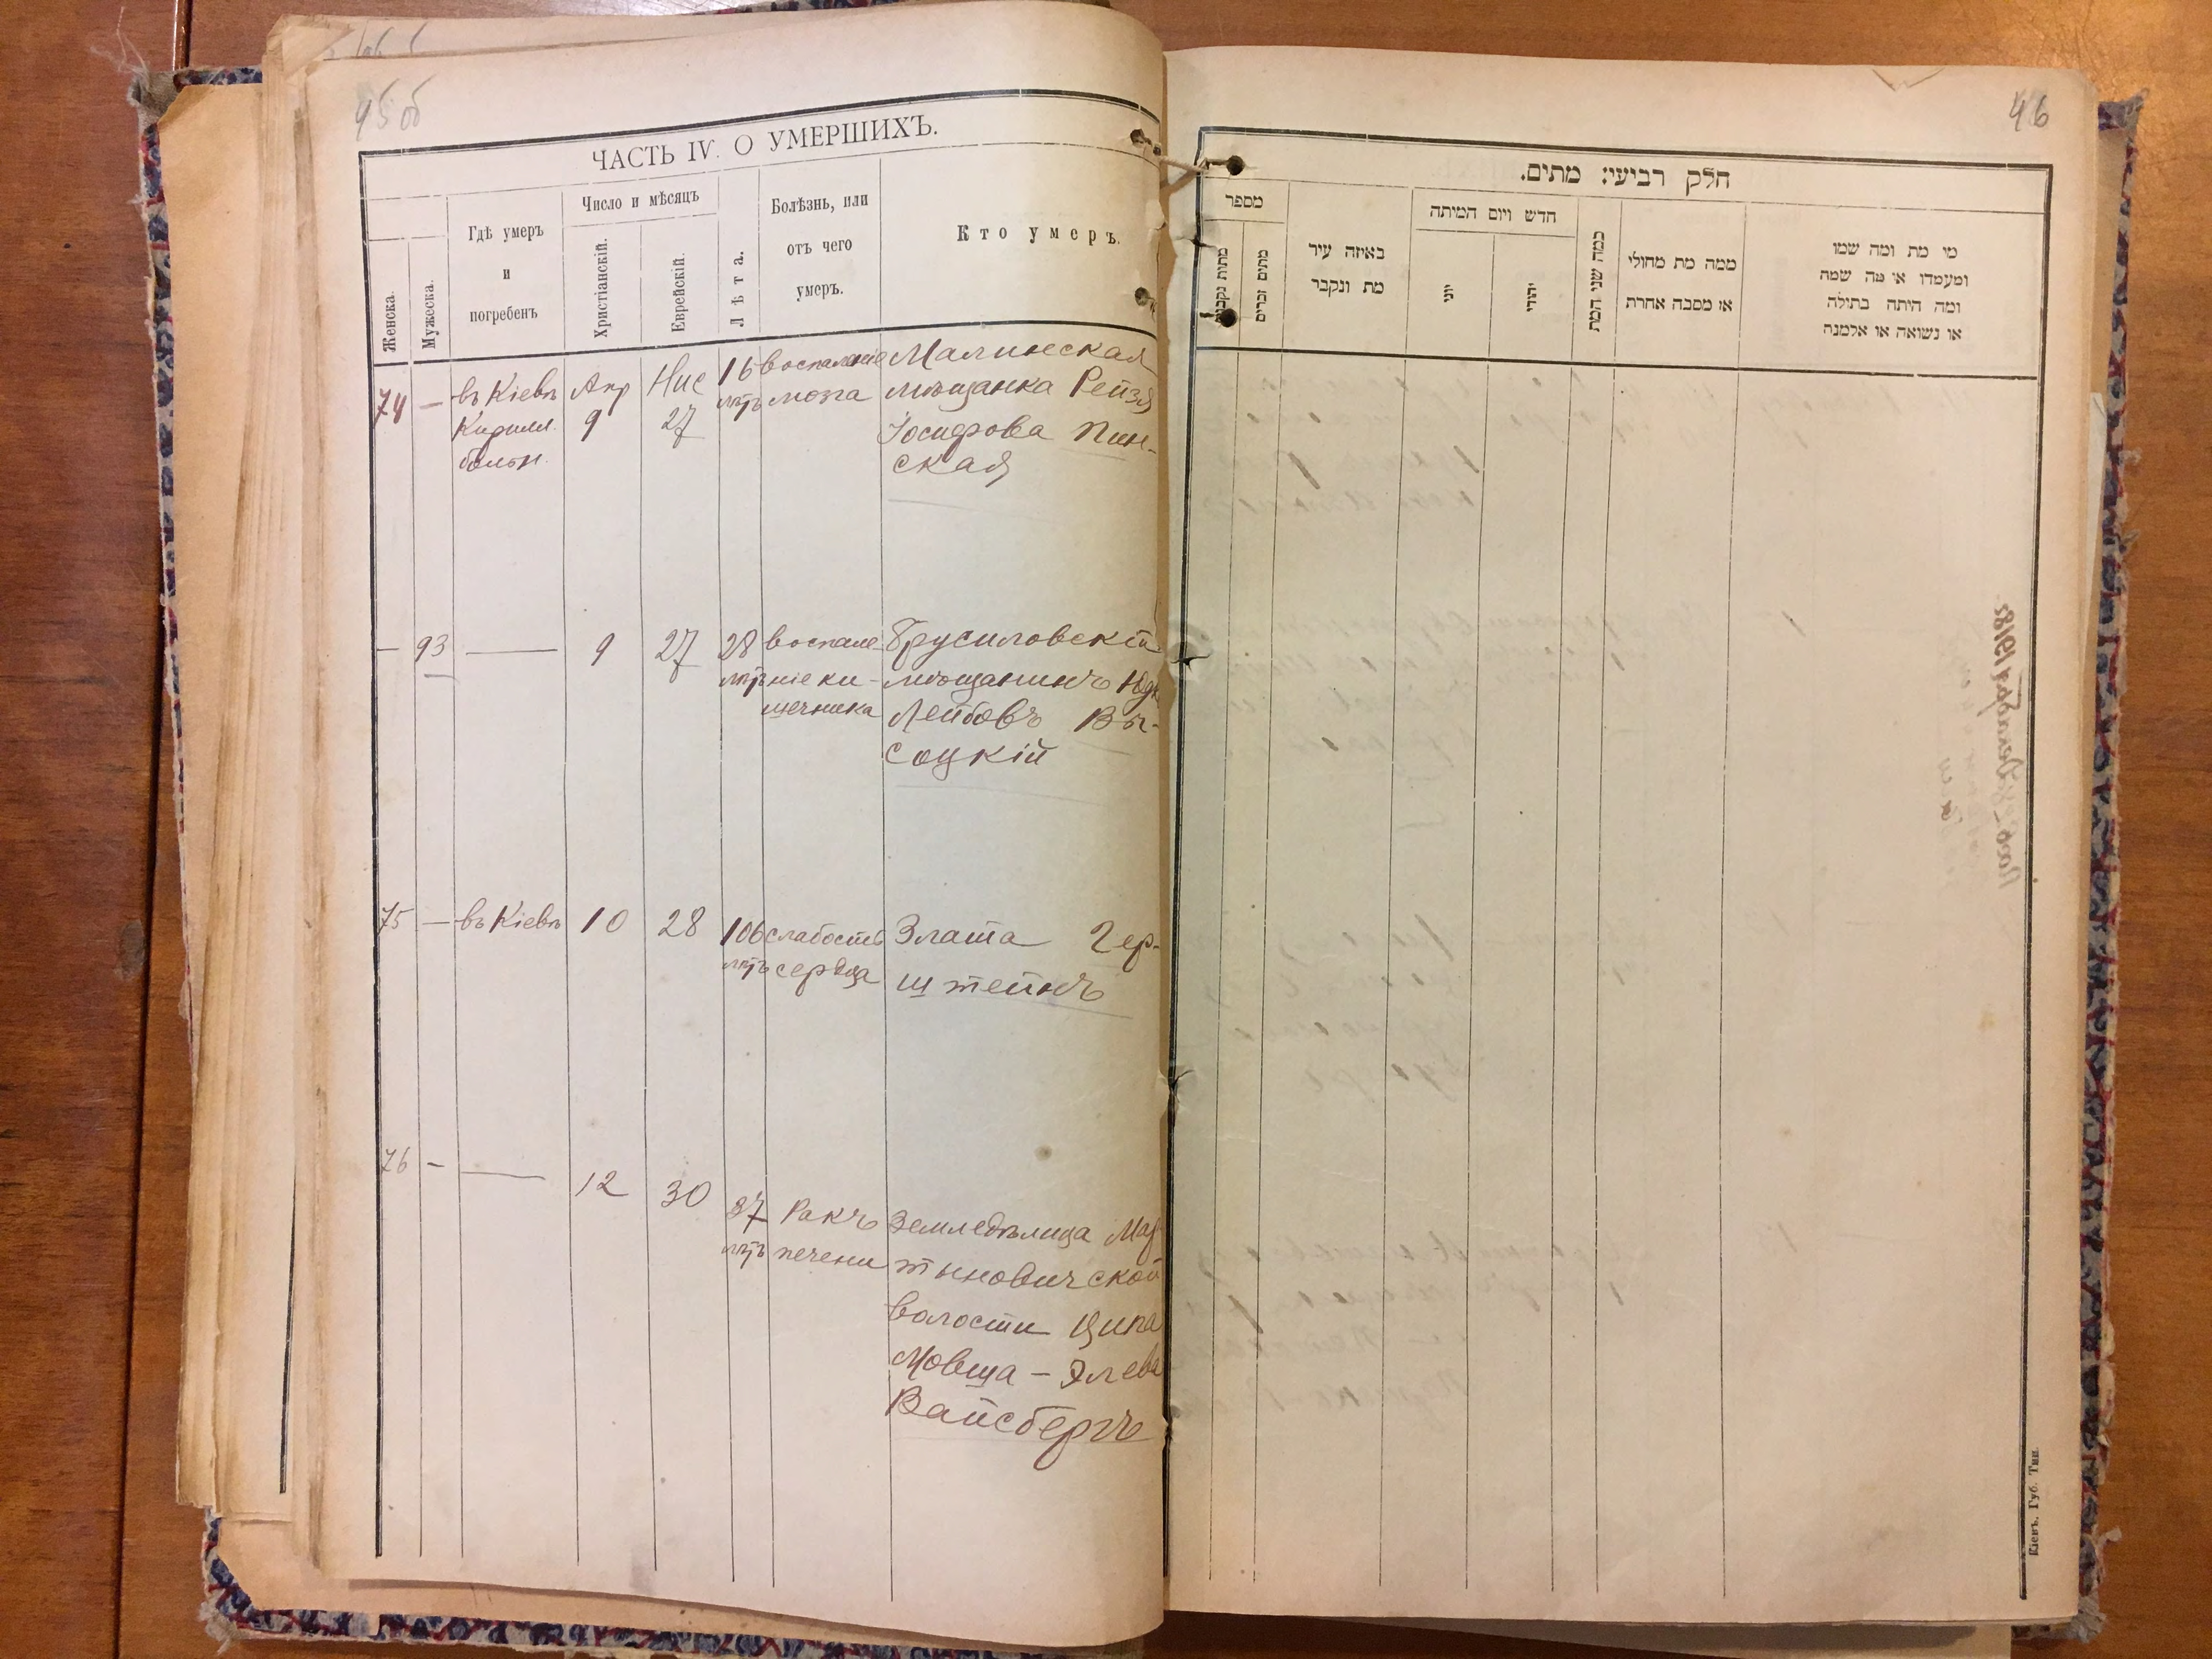 45 об
ЧАСТЬ IV. О УМЕРШИХЪ.
Женска.
Мужеска.
Гдѣ умеръ
и
погребенъ
Число и мѣсяцъ
Христіанскій.
Еврейскій.
Лѣта.
Болѣзнь, или
отъ чего
умеръ.
Кто умеръ.
74 — въ Кіевѣ Апр Нис 16 воспаленіе Малинская
лѣтъ мозга мѣщанка Рейзя
Кирилл. 9 27 Іосифова Пин-
больн. ская
— 93 — 9 27 28 воспале- Брусиловскій
лѣтъ ніе ки- мѣщанинъ
шечника Лейбовъ Вы-
соцкій
75 — въ Кіевѣ 10 28 106 слабость Злата Гер-
лѣтъ сердца штейнъ
76 — — 12 30 37 Ракъ Земледѣлица Мар
лѣтъ печени тыновичской
волости Ципа
Мовша-Элева
Вайсбергъ
46
חלק רביעי: מתים.
מספר
מתות נקבות
מתים זכרים
באיזה עיר
מת ונקבר
חדש ויום המיתה
יוני
יהודי
כמה שני המת
ממה מת מחולי
או מסבה אחרת
מי מת ומה שמו
ומעמדו או מה שמה
ומה היתה בתולה
או נשואה או אלמנה
Кіевъ. Губ. Тип.